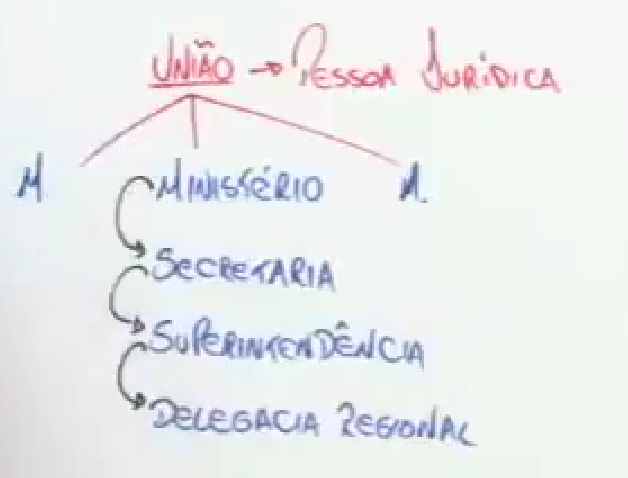 UNIÃO → PESSOA JURÍDICA
M. MINISTÉRIO M.
SECRETARIA
SUPERINTENDÊNCIA
DELEGACIA REGIONAL